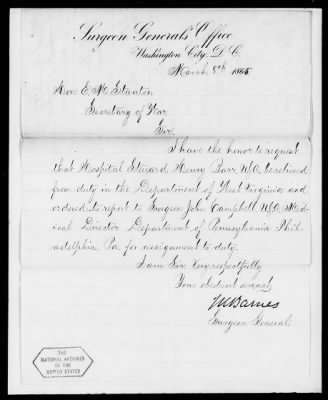 Surgeon General's Office
Washington City, D.C.
March 8th 1865.
Hon E. M. Stanton
Secretary of War
Sir.
I have the honor to request
that Hospital Steward Henry Barr, U.S.A. be relieved
from duty in the Department of West Virginia and
ordered to report to Surgeon John Campbell U.S.A. Med-
ical Director Department of Pennsylvania Phil-
adelphia, Pa. for assignment to duty.
I am Sir Very respectfully
Your obedient servant
Barnes
Surgeon General
THE
NATIONAL ARCHIVES
OF THE
UNITED STATES